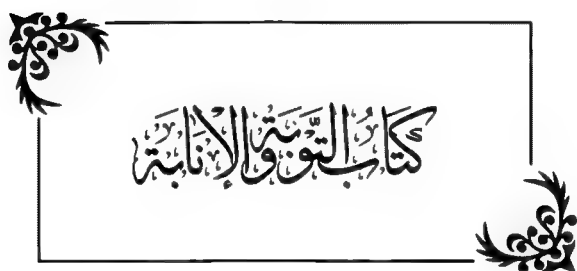 كِتَابُ التَّوْبَةِ وَالْإِنَابَةِ